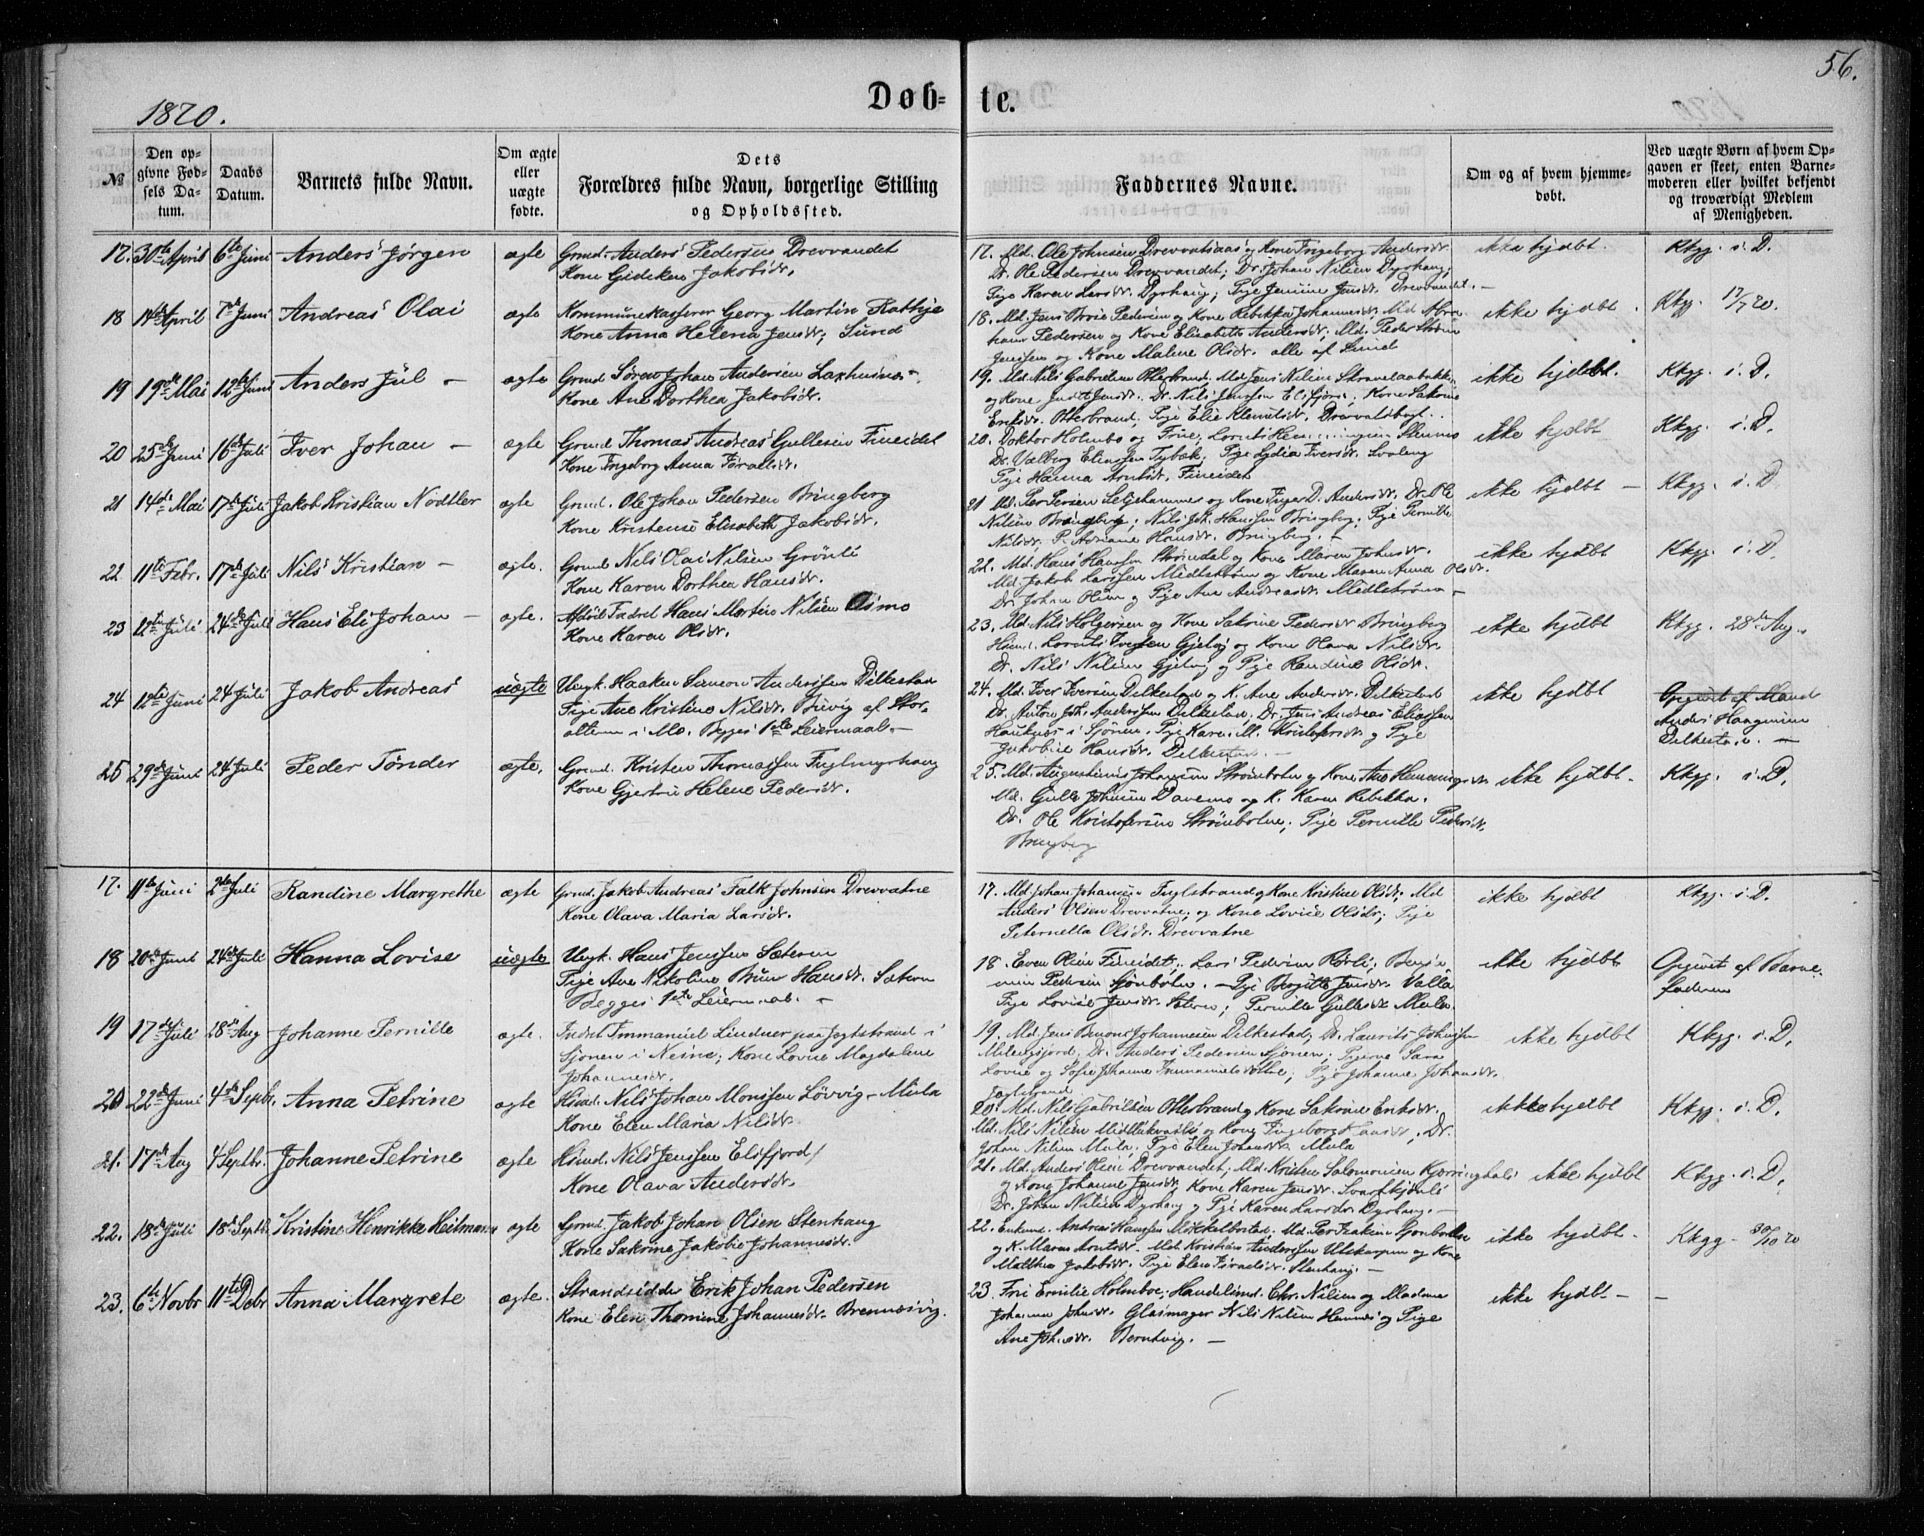 56.
1870.
Døb-
te.
№
Den op-
givne Fød-
sels Da-
tum.
Daabs
Datum.
Barnets fulde Navn.
Om ægte
eller
uægte
fødte.
Dets
Forældres fulde Navn, borgerlige Stilling
og Opholdssted.
Faddernes Navne.
Om og af hvem hjemme-
døbt.
Ved uægte Børn af hvem Op-
gaven er skeet, enten Barne-
moderen eller hvilket bekjendt
og troværdigt Medlem
af Menigheden.
17. 30te April 6te Juni Anders Jørgen ægte Grmd. Anders Pedersen Drevvandet
Kone Gideken Jakobsdr.
17. Md. Ole Johnsen Drevvatsaas og Kone Ingeborg Andersdr.
Dr. Ole Pedersen Drevvandet; Dr. Johan Nilsen Dyrhaug;
Pige Karen Larsdr. Dyrhaug; Pige Jensine Jensdr. Drevvandet. —
ikke hjdbt. Kkgg. i. D.
18 14de April 7de Juni Andreas Olai ægte Kommunekasserer Georg Martin Rathje
Kone Anna Helena Jensdr; Sund
18. Md. Jens Brose Pedersen og Kone Rebekka Johannesdr; Md Abra-
ham Pedersen og Kone Elisabeth Andersdr; Md. Peder Strøm
Jenssen og Kone Malene Olsdr. alle af Sund
ikke hjdbt. Kkg. 17/7 70.
19 19de Mai 12te Juni Anders Jul — ægte Grmd. Søren Johan Andersen Laxhusnes.
Kone Ane Dorthea Jakobsdr.
19. Md. Nils Gabrielsen Otterbrand; Md. Jens Nilsen Stravelaabakke
og Kone Judit Jensdr. Dr. Nils Jenssen Elsfjord; Kone Sakrine
Eriksdr. Otterbrand; Pige Elie Klemetsdr. Drevvasbogt.
ikke hjdbt. Kkgg. i. D.
20 25de Juni 16de Juli Iver Johan — ægte Grmd Thomas Andreas Gullesen Fineidet
Kone Ingeborg Anna Israelsdr.
20. Doktor Holmbo og Frue; Lornts Hemmingsen Stenmo
Dr. Valberg Eliassen Tybæk; Pige Lydia Iversdr. Svaleng
Pige Hanna Arntsdr. Fineidet
ikke hjdbt Kkgg. i. D.
21 14de Mai 17de Juli Jakob Kristian Nødtler ægte Grmd. Ole Johan Pedersen Bringberg
Kone Kristense Elisabeth Jakobsdr.
21 Md. Per Persen Seljehammer og Kone Inger D. Andersdr. Dr. Ole
Nilsen Bringberg; Nils Joh. Hanssen Bringberg. Pige Pernille
Nilsdr. P. Adriane Hansdr. Bringberg. —
ikke hjdbt — Kkgg. i. D.
22 11te Febr. 17de Juli Nils Kristian — ægte. Grmd Nils Olai Nilsen Grønli
Kone Karen Dorthea Hansdr.
22. Md. Hans Hansen Strømdal og Kone Maren Johnsdr.
Md. Jakob Larssen Midtstrøm og Kone Maren Anna Olsdr.
Dr. Johan Olsen og Pige Ane Andreasdr. Midtstrøm —
ikke hjdbt Kkgg. i. D
23 12te Juli 24de Juli Hans Eli Johan — ægte. Hans Martin Nilsen Osmo
Kone Karen Olsdr.
23. Md. Nils Holgersen og Kone Sakrine Pedersdr Bringberg
Husmd. Lornts Iversen Gjelvig og Kone Olava Nilsdr.
Dr. Nils Nilsen Gjelvig og Pige Randine Olsdr.
ikke hjdbt Kkgg. 28de Aug.
24 12te Juni 24 Juli Jakob Andreas uægte Ungk. Haaken Simeon Anderssen Dilkestad
Pige Ane Kristine Nilsdr. Brevig af Stor-
alteren i Mo. Begges 1ste Leiermaal. —
24. Md. Iver Iversen Dilkestad og K. Ane Andersdr. Dilkestad
Dr. Anton Joh. Anderssen Dilkestad. Dr. Jens Andreas Eliassen
Hauknes i Sjonen. Pige Karen M. Kristofersdr og Pige
Jakobine Hansdr. Dilkestad. —
ikke hjdbt Opgivet af Mand
Anders Haagensen
Dilkestad. —
25 29de Juni 24 Juli Peder Tønder ægte. Grmd. Kristen Thomassen Fuglmyrhaug
Kone Gjertru Helene Pedersdr.
25. Md. Augustinus Johansen Strømbotn og Kone Ane Hemmingsdr.
Md. Gulle Johnsen Davemo og K. Karen Rebekka.
Dr. Ole Kristofersen Strømbotn; Pige Pernille Pedersdr.
Bringberg
ikke hjdbt. Kkgg. i. D.
17. 11te Juni 2den Juli Randine Margrethe ægte Grmd. Jakob Andreas Falk Johnsen Drevvatne
Kone Olava Maria Larsdr.
17. Md. Johan Johansen Fuglstrand og Kone Kristine Olsdr; Md
Anders Olsen Drevvatne, og Kone Lovise Olsdr; Pige
Peternella Olsdr. Drevvatne
ikke hjdbt Kkgg. i. D.
18 20de Juni 24de Juli Hanna Lovise uægte Ungk. Hans Jenssen Sæteren
Pige Ane Nikoline Brun Hansdr. Sæteren
Begges 1ste Leiermaal. —
18. Even Olsen Fineidet; Lars Pedersen Rørli;
Pedersen Sjonbotn. — Pige Birgitte Jensdr. Valla
Pige Lovise Jensdr. Sæteren; Pernille Gullesdr Mula
ikke hjdbt Opgivet af Barne-
faderen
19 17de Juli 28de Aug Johanne Pernille ægte. Indrd. Immanuel Lindner paa Fagtstrand i
Sjonen i Nesne; Kone Lovise Magdalene
Johannesdr.
19. Md. Jens Benoni Johannesen Dilkestad; Dr. Laurits Johnsen
Milingsjord; Dr. Anders Pedersen Sjonen; Pigerne Sara
Lovise og Sofie Johanne Immanuelsdøttre; Pige Johanne Johansdr.
ikke hjdbt Kkgg. i. D.
20 22de Juni 4de Septbr. Anna Petrine ægte Husmd. Nils Johan Monssen Løvvig — Mula
Kone Elen Maria Nilsdr.
20. Md. Nils Gabrielsen Otterbrand og Kone Sakrine Eriksdr.
Md. Nils Nilsen og Kone Ingeborg; Dr.
Johan Nilsen Mula; Pige Elen Johansdr. Mula
ikke hjdbt Kkgg. i. D.
21. 17de Aug 4 Septbr. Johanne Petrine ægte Husmd. Nils Jenssen Elsfjord
Kone Olava Andersdr.
21. Md. Anders Olsen Drevvandet; Md. Kristen Salomonsen Kjærringdal
og Kone Johanne Jensdr; Kone Karen Jensdr. Svartkjødli
Dr. Johan Nilsen Dyrhaug og Pige Karen Larsdr. Dyrhaug. —
ikke hjdbt Kkgg. i. D.
22. 18de Juli 18de Septbr Kristine Henrikke Heitmann ægte Grmd. Jakob Johan Olsen Stenhaug
Kone Sakrine Jakobie Johannesdr.
22. Enkemd. Andreas Hanssen Mikkelbostad. Md. Per Isaksen Sjonbotn
og K. Maren Arntsdr. Md. Kristian Anderssen Utskarpen og Kone
Matthea Jakobsdr. Pige Elen Israelsdr. Stenhaug. —
ikke hjdbt. Kkgg — 30/10 70
23. 6te Novbr 11te Debr Anna Margrete ægte. Strandsidder Erik Johan Pedersen
Kone Elen Thomine Johannesdr. Brennæsvig.
23. Fru Emilie Holmboe; Handelsmd. Chr. Nilsen og Madame
Johanna Johnsdr. Glasmager Nils Nilsen Hemnes og Pige
Ane Johnsdr. Berntvig. —
ikke hjdbt — —